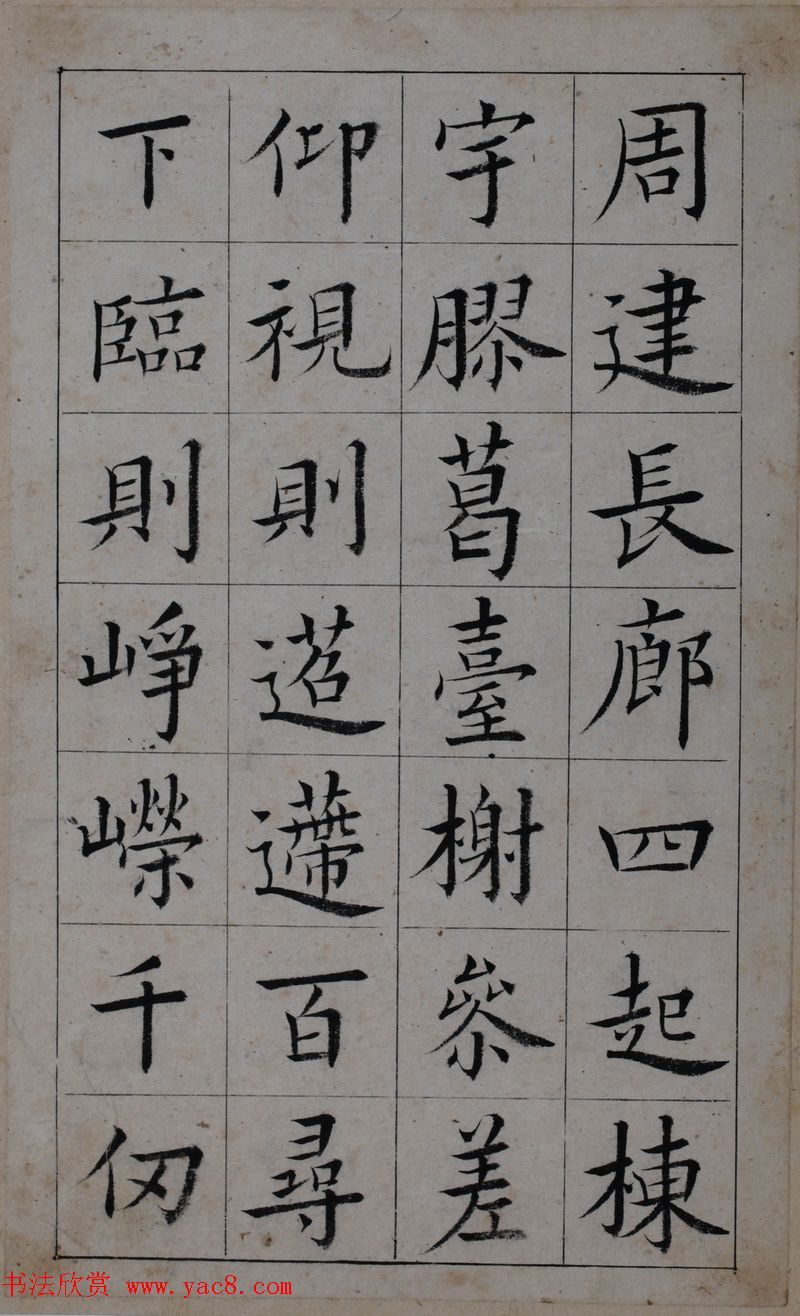 周建長廊四起棟
宇膠葛臺榭叅差
仰視則迢遰百尋
下臨則崢嶸千仞
书法欣赏 www.yac8.com